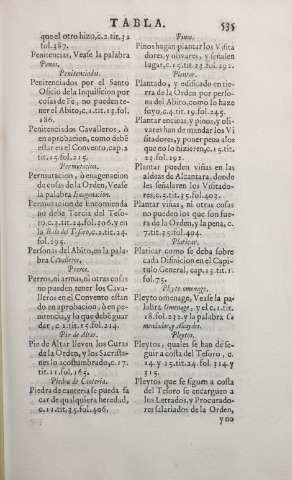 TABLA. 535
que el otro hizo, c.2.tit.32
fol.287.
Penitencias, Vease la palabra
Penas.
Penitenciados.
Penitenciados por el Santo
Oficio de la Inquisicion por
cosas de Fè, no pueden te-
ner el Abito, c.1.tit.13.fol.
186.
Penitenciados Cavalleros, ò
en aprobacion, como debẽ
estar en el Convento, cap.2
tit.15.fol.215.
Permutacion.
Permutacion, ò enagenacion
de cosas de la Orden, Vease
la palabra Enagenacion.
Permutacion de Encomienda
no debe Tercia del Teso-
ro, c.1.tit.24.fol.306.y en
la Bula del Tesoro, c.2.tit.24.
fol.295.
Personas del Abito, en la pala-
bra Cavalleros.
Perros.
Perros, ni armas, ni otras cosas
no pueden tener los Cava-
lleros en el Convento están
do en aprobacion, ò en pe-
nitencia, y lo que debẽ guar
dar, c.2.tit.15.fol.214.
Pie de Altar.
Pie de Altar lleven los Curas
de la Orden, y los Sacrista-
nes lo acostumbrado, c.17.
tit.11.fol.165.
Piedra de Canteria.
Piedra de canteria se pueda sa
car de qualquiera heredad,
c.11.tit.35.fol.406.
Pinos.
Pinos hagan plantar los Visita
dores, y olivares, y señalen
lugar, c.15.tit.23.fol.292.
Plantar.
Plantado, y edificado en tie-
rra de la Orden por perso-
na del Abito, como lo haze
suyo, c.4.tit.19.fol.245.
Plantar encinas, y pinos, y oli-
vares han de mandar los Vi
sitadores, y poner pena a los
que no lo hizieren, c.15.tit.
23.fol.292.
Plantar pueden viñas en las
aldeas de Alcantara, donde
les señalaren los Visitado-
res, c.5.tit.35.fol.403.
Plantar viñas, ni otras cosas
no pueden los que son fue-
ra de la Orden, y la pena, c.
7.tit.35.fol.404.
Platicar.
Platicar como se deba sobre
cada Difinicion en el Capi-
tulo General, cap.13.tit.1.
fol.75.
Pleyto omenage.
Pleyto omenage, Vease la pa-
labra Omenage, y el c.1.tit.
18.fol.232.y la palabra Co
mendador, y Alcaydes.
Pleytos.
Pleytos, quales se han de se-
guir a costa del Tesoro, c.
14.y 15.tit.24.fol.314.y
315.
Pleytos que se siguen a costa
del Tesoro se encarguen a
los Letrados, y Procurado-
res salariados de la Orden,
y no